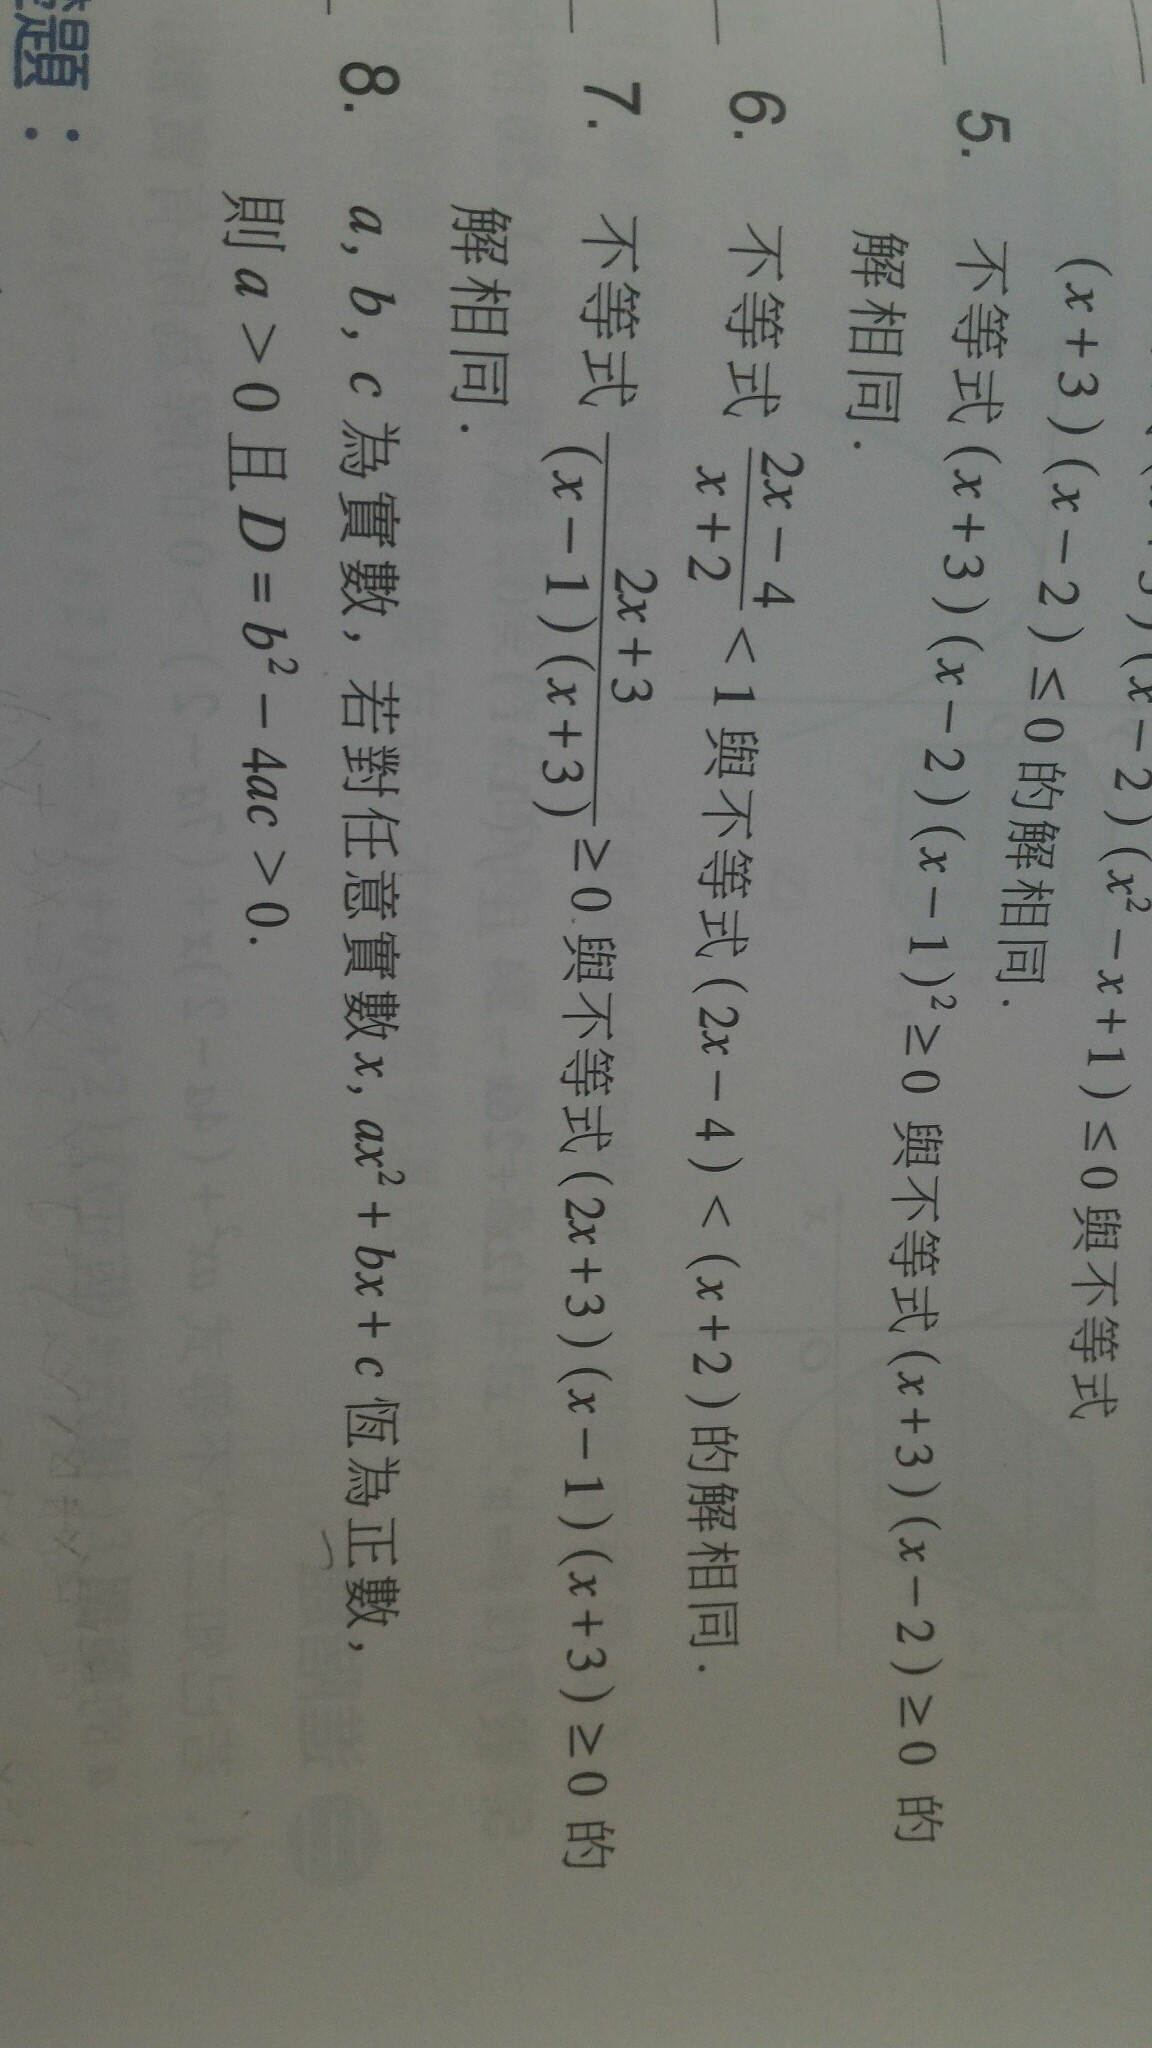 (x-2)(x²-x+1)≤0 與不等式
(x+3)(x-2)≤0 的解相同.
5. 不等式(x+3)(x-2)(x-1)²≥0 與不等式(x+3)(x-2)≥0 的
解相同.
6. 不等式 (2x-4)/(x+2) <1 與不等式(2x-4)<(x+2)的解相同.
7. 不等式 (2x+3)/((x-1)(x+3)) ≥0 與不等式(2x+3)(x-1)(x+3)≥0 的
解相同.
8. a, b, c 為實數, 若對任意實數x, ax²+bx+c 恆為正數,
則 a>0 且 D=b²-4ac>0.
題: